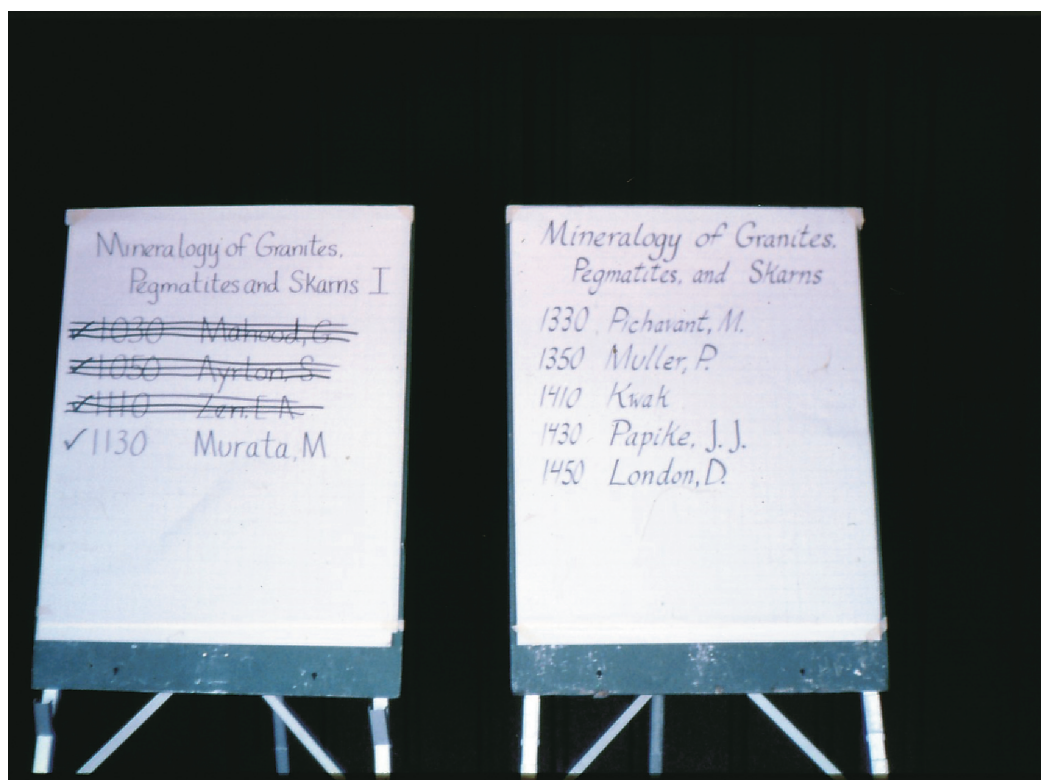 Mineralogy of Granites,
Pegmatites and Skarns I
✓1030 Mahood, G
✓1050 Ayrton, S
✓1110 Zen, E A
✓1130 Murata, M.
Mineralogy of Granites,
Pegmatites, and Skarns
1330 Pichavant, M.
1350 Muller, P.
1410 Kwak
1430 Papike, J. J.
1450 London, D.